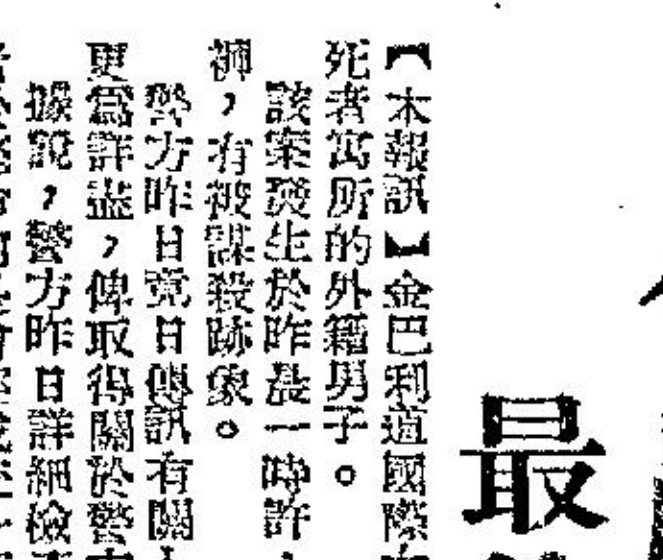 最
【本報訊】金巴利道國際
死者寓所的外籍男子。
該案發生於昨晨一時許，
褲，有被謀殺跡象。
警方昨日竟日傳訊有關
更爲詳盡，俾取得關於警
據說，警方昨日詳細檢